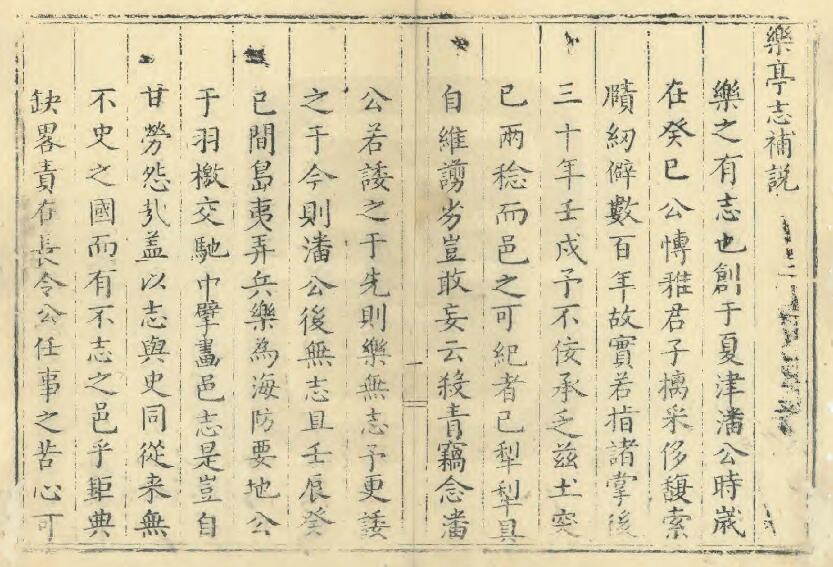 樂亭志補説
樂之有志也創于夏津潘公時嵗
在癸巳公慱雅君子摛采侈馥索
賾紉僻數百年故實若指諸掌後
三十年壬戍予不佞承乏兹土突
已兩稔而邑之可紀者已犁犁具
自維謭劣豈敢妄云殺青竊念潘
公若諉之于先則樂無志予更諉
之于今則潘公後無志且壬辰癸
已間島夷弄兵樂為海防要地公
于羽檄交馳中擘畫邑志是豈自
甘勞怨㢤盖以志與史同從来無
不史之國而有不志之邑乎鉅典
缺畧責在長令公任事之苦心可